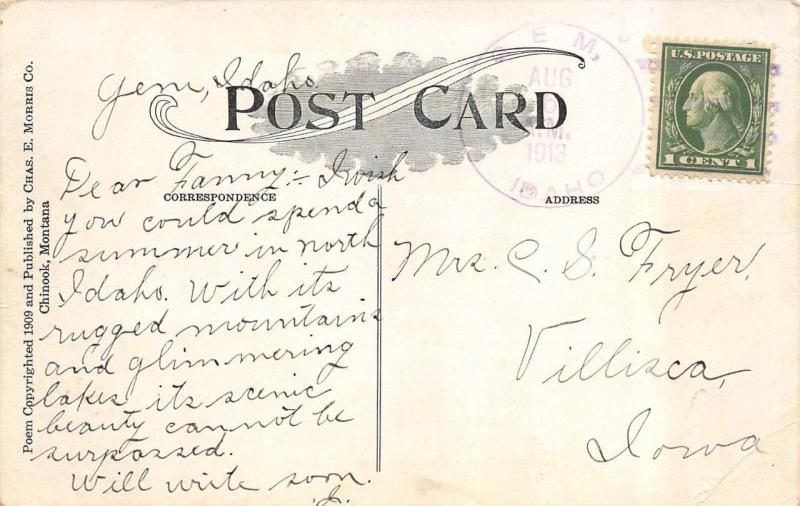 Gem, Idaho.
POST CARD
U.S. POSTAGE
1 CENT 1
EM,
AUG
M.
1913
IDAHO
Poem Copyrighted 1909 and Published by CHAS. E. MORRIS Co.
Chinook, Montana
CORRESPONDENCE
ADDRESS
Dear Fanny:- I wish
you could spend a
summer in north
Idaho. With its
rugged mountains
and glimmering
lakes its scenic
beauty cannot be
surpassed.
Will write soon.
J.
Mrs. C. S. Fryer,
Villisca,
Iowa